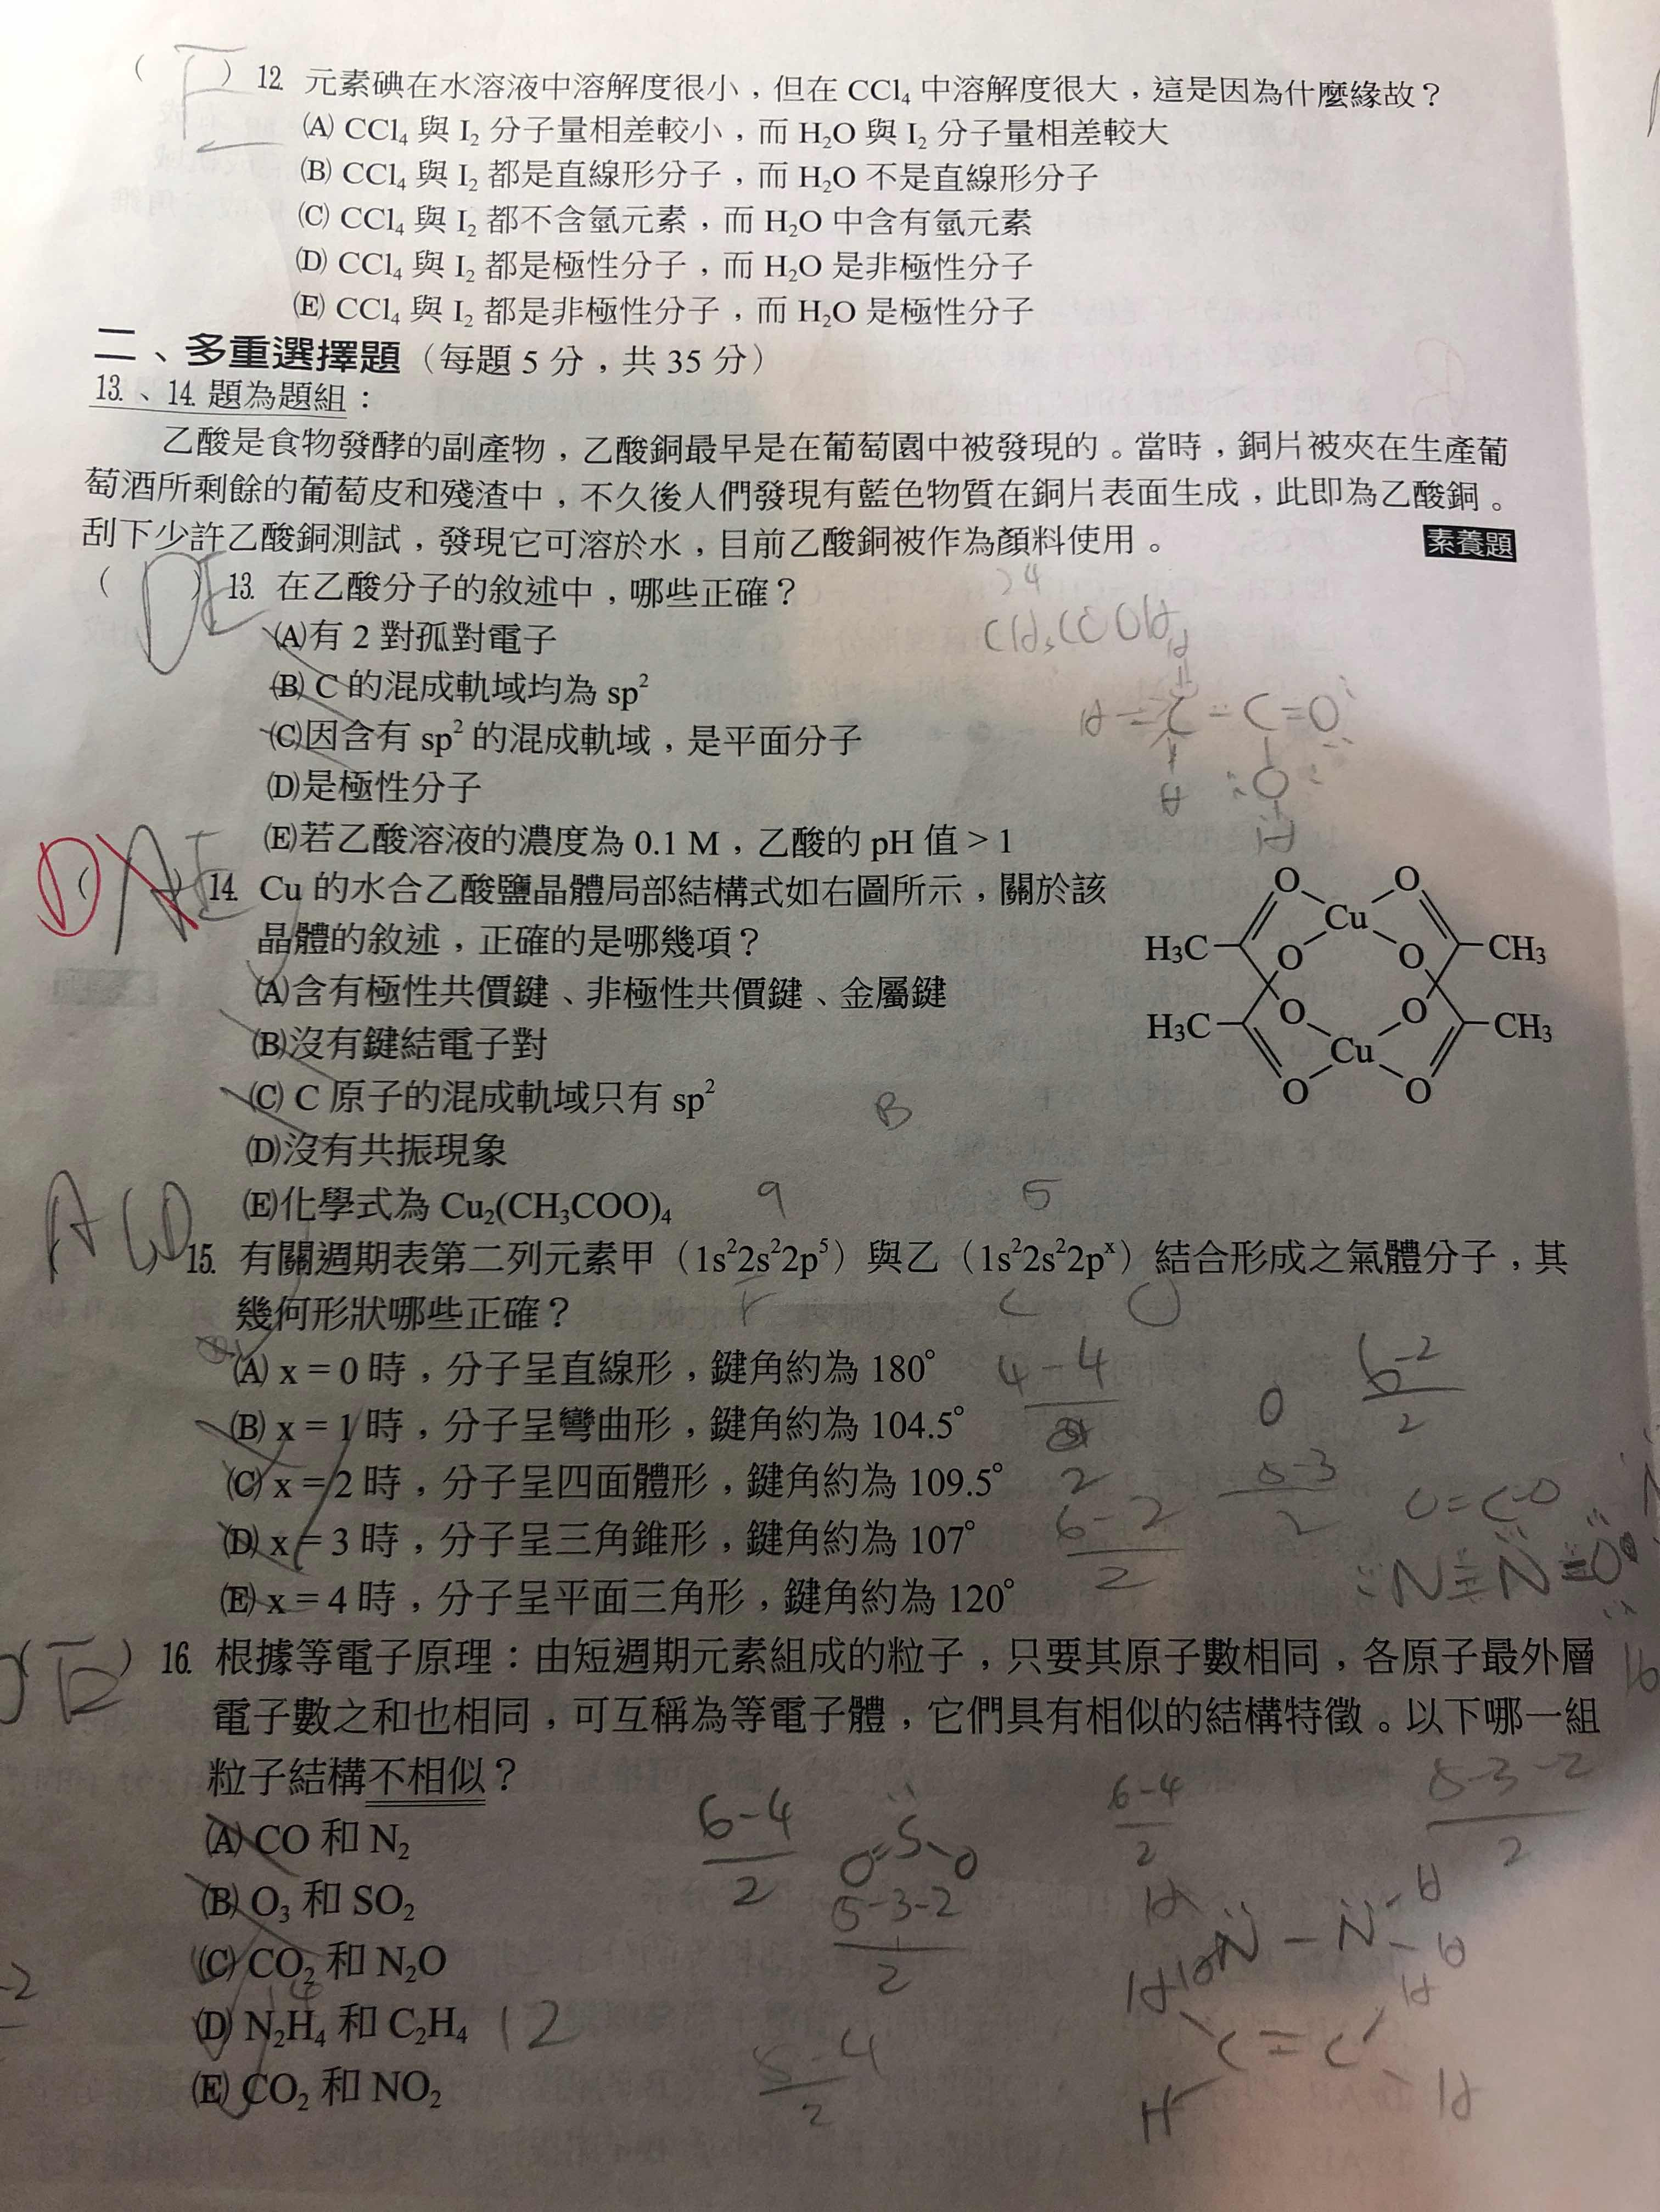 ( E ) 12. 元素碘在水溶液中溶解度很小，但在 CCl₄ 中溶解度很大，這是因為什麼緣故？
(A) CCl₄ 與 I₂ 分子量相差較小，而 H₂O 與 I₂ 分子量相差較大
(B) CCl₄ 與 I₂ 都是直線形分子，而 H₂O 不是直線形分子
(C) CCl₄ 與 I₂ 都不含氫元素，而 H₂O 中含有氫元素
(D) CCl₄ 與 I₂ 都是極性分子，而 H₂O 是非極性分子
(E) CCl₄ 與 I₂ 都是非極性分子，而 H₂O 是極性分子
二、多重選擇題（每題 5 分，共 35 分）
13.、14. 題為題組：
乙酸是食物發酵的副產物，乙酸銅最早是在葡萄園中被發現的。當時，銅片被夾在生產葡
萄酒所剩餘的葡萄皮和殘渣中，不久後人們發現有藍色物質在銅片表面生成，此即為乙酸銅。
刮下少許乙酸銅測試，發現它可溶於水，目前乙酸銅被作為顏料使用。 素養題
( DE ) 13. 在乙酸分子的敘述中，哪些正確？
24
CH₃COOH
(A)有 2 對孤對電子
(B) C 的混成軌域均為 sp²
H C C=O
(C)因含有 sp² 的混成軌域，是平面分子
(D)是極性分子
H O
H
(E)若乙酸溶液的濃度為 0.1 M，乙酸的 pH 值 > 1
D AE 14. Cu 的水合乙酸鹽晶體局部結構式如右圖所示，關於該
晶體的敘述，正確的是哪幾項？
(A)含有極性共價鍵、非極性共價鍵、金屬鍵
(B)沒有鍵結電子對
(C) C 原子的混成軌域只有 sp²
B
(D)沒有共振現象
(E)化學式為 Cu₂(CH₃COO)₄
O O
Cu
H₃C O O CH₃
H₃C O O CH₃
Cu
O O
9 5
ACD 15. 有關週期表第二列元素甲（1s²2s²2p⁵）與乙（1s²2s²2pˣ）結合形成之氣體分子，其
幾何形狀哪些正確？
F C
(A) x = 0 時，分子呈直線形，鍵角約為 180°
4-4
6-2
2
0
(B) x = 1 時，分子呈彎曲形，鍵角約為 104.5°
(C) x = 2 時，分子呈四面體形，鍵角約為 109.5°
2
5-3
2
6-2
2
(D) x = 3 時，分子呈三角錐形，鍵角約為 107°
N N O
(E) x = 4 時，分子呈平面三角形，鍵角約為 120°
16
16. 根據等電子原理：由短週期元素組成的粒子，只要其原子數相同，各原子最外層
電子數之和也相同，可互稱為等電子體，它們具有相似的結構特徵。以下哪一組
粒子結構不相似？
6-4
2
O S O
6-4
2
5-3-2
2
(A) CO 和 N₂
(B) O₃ 和 SO₂
5-3-2
2
(C) CO₂ 和 N₂O
N - N
(D) N₂H₄ 和 C₂H₄
14
12
C = C
(E) CO₂ 和 NO₂
5-4
2
H H
-2